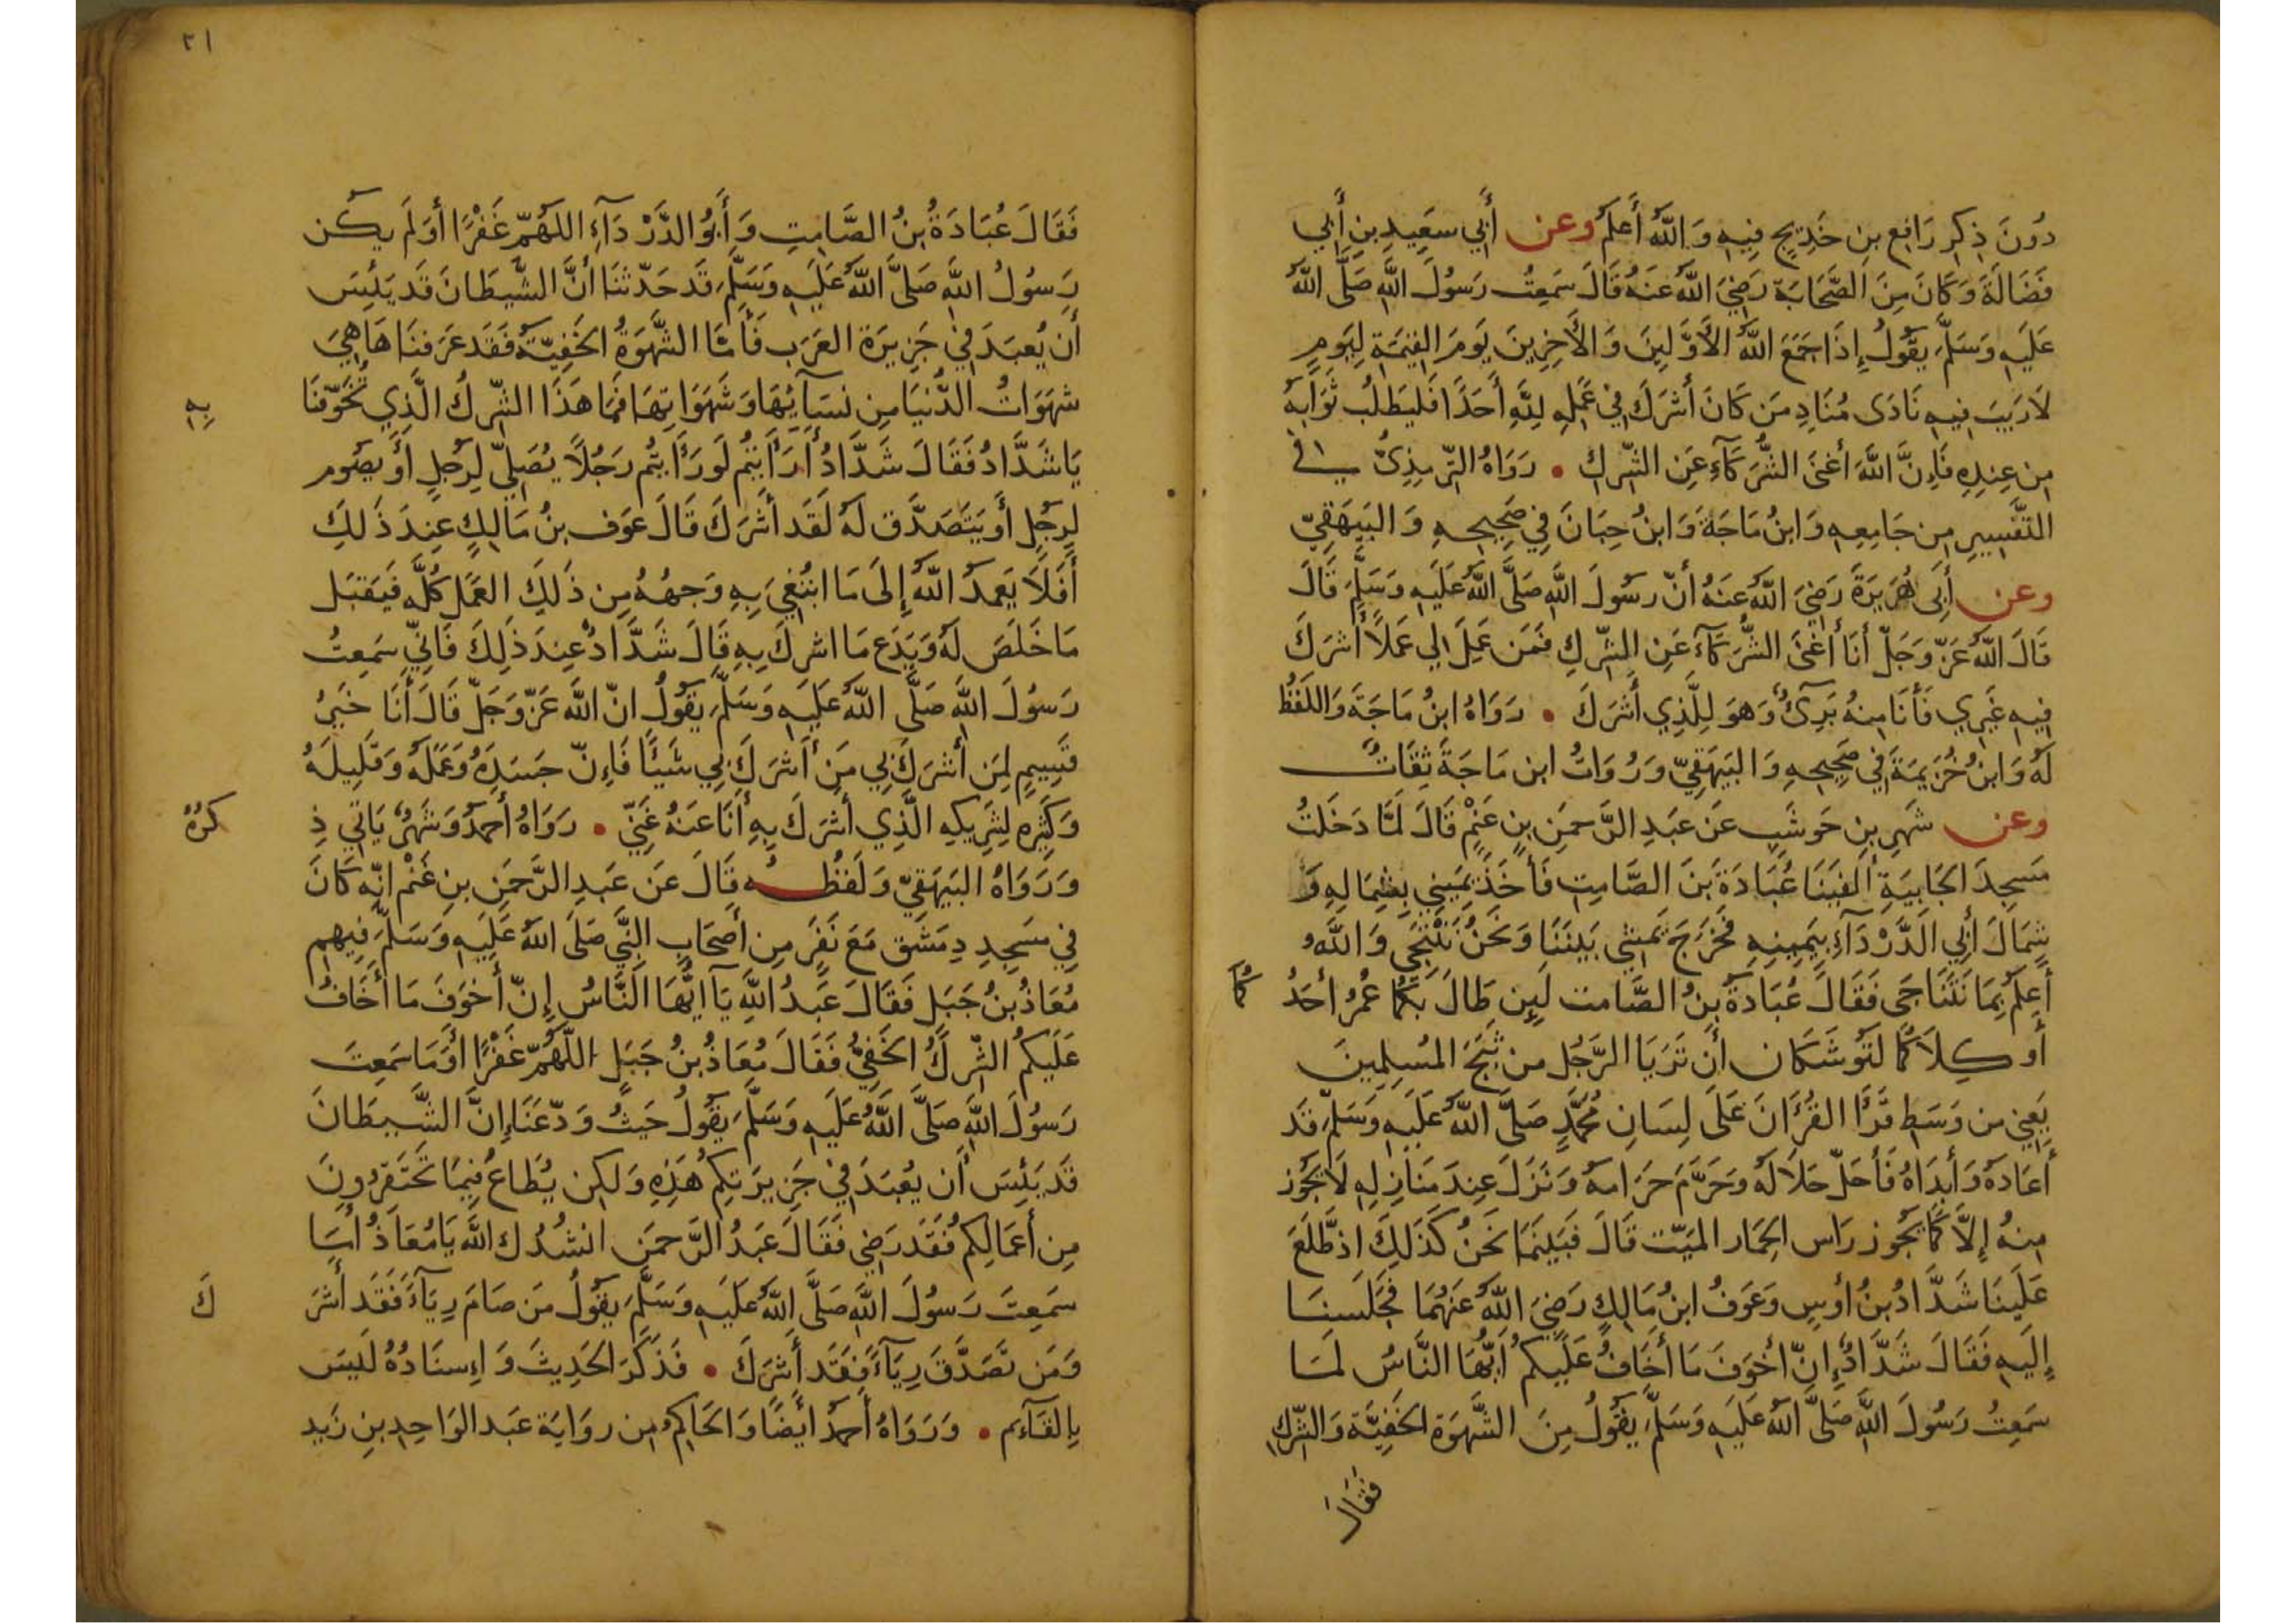 دُونَ ذِكِرِ رَافِعِ بنِ خَدِيجٍ فِيهِ وَاللَّهُ أَعلَمُ وعن أَبِي سَعِيدِ بنِ أَبِي
فَضَالَةَ وَكَانَ مِنَ الصَّحَابَةِ رَضِيَ اللَّهُ عَنهُ قَالَ سَمِعتُ رَسُولَ اللَّهِ صَلَّى اللَّهُ
عَلَيهِ وَسَلَّمَ يَقُولُ إِذَا جَمَعَ اللَّهُ الأَوَّلِينَ وَالأَخِرِينَ يَومَ القِيمَةِ لِيَومٍ
لَا رَيبَ فِيهِ نَادَى مُنَادٍ مَن كَانَ أَشرَكَ فِي عَمَلِهِ لِلَّهِ أَحَدًا فَليَطلُب ثَوَابَهُ
مِن عِندِهِ فَإِنَّ اللَّهَ أَغنَى الشُّرَكَآءِ عَنِ الشِّركِ • رَوَاهُ التِّرمِذِيُّ في
التَّفسِيرِ مِن جَامِعِهِ وَابنُ مَاجَةَ وَابنُ حِبَانَ فِي صَحِيحِهِ وَالبَيهَقِيّ
وعن أَبِى هُرَيرَةَ رَضِيَ اللَّهُ عَنهُ أَنّ رَسُولَ اللَّهِ صَلَّى اللَّهُ عَلَيهِ وَسَلَّمَ قَالَ
قَالَ اللَّهُ عَزّ وَجَلّ أَنَا أَغنَى الشُّرَكَآءِ عَنِ الشِّركِ فَمَن عَمِلَ لِي عَمَلًا أَشرَكَ
فِيهِ غَيرِي فَأَنَا مِنهُ بَرِىءٌ وَهوَ لِلَّذِي أَشرَكَ • رَوَاهُ ابنُ مَاجَةَ وَاللَفظُ
لَهُ وَابنُ خُزَيمَةَ فِي صَحِيحِهِ وَالبَيهَقِيّ وَرُوَاتُ ابن مَاجَةَ ثِقَاتٌ
وعن شَهرِ بنِ حَوشَبٍ عَن عَبدِ الرَّحمَنِ بنِ غَنْمٍ قَالَ لَمَّا دَخَلتُ
مَسجِدَ الجَابِيَةِ أَلفَينَا عُبَادَةَ بنَ الصَّامِتِ فَأَخَذَ يَمِينِي بِشِمَالِهِ وَ
شِمَالَ أَبِي الدَّرْدَآءِ بِيَمِينِهِ فَخَرَجَ يَمشِي بَينَنَا وَنَحنُ نَنتَجِى وَاللَّهُ
أَعلَمُ بِمَا نَتَنَاجَى فَقَالَ عُبَادَةُ بنُ الصَّامت لَئِن طَالَ بِكُمَا عُمُرُ أَحَدُ كُمَا
أَو كِلَاكُمَا لَتُوشَكَان أَن تَرَيَا الرَّجُل من ثَبَجَ المُسلِمِينَ
يَعنِي من وَسَطِ قَرَأَ القُرَأنَ عَلَى لِسَانِ مُحَمَّدٍ صَلَّى اللَّهُ عَلَيهِ وَسَلَّمَ قَد
أَعَادَهُ وَأَبدَاهُ فَأَحَلّ حَلَالَهُ وَحَرَّمَ حَرَامهُ وَنَزَلَ عِندَ مَنَازِلِهِ لَا يَجُوز
مِنهُ إِلَّا كَمَا يَجُوز رَاس الحِمَار المَيّت قَالَ فَبَينَمَا نَحنُ كَذَلِكَ إِذ طَّلَعَ
عَلَينَا شَدَّادُ بنُ أَوسٍ وَعَوفُ ابنُ مَالِكٍ رَضِيَ اللَّهُ عَنهُمَا فَجَلَسنَا
إِلَيهِ فَقَالَ شَدَّادٌ إِنّ أَخوَفَ مَا أَخَافُ عَلَيكُم أَيُّهَا النَّاسُ لمَا
سَمِعتُ رَسُولَ اللَّهِ صَلَّى اللَّهُ عَلَيهِ وَسَلَّمَ يَقُولُ مِنَ الشَّهوَةِ الخَفِيَّةِ وَالشِّركِ
فَقَالَ
٢١
فَقَالَ عُبَادَةُ بنُ الصَّامِتِ وَأَبُو الدَّرْدَآءِ اللَّهُمّ غَفْرًا أَوَلَم يَكُن
رَسُولُ اللَّهِ صَلَّى اللَّهُ عَلَيهِ وَسَلَّمَ قَد حَدّثنَا أَنَّ الشَّيطَانَ قَد يَئِسَ
أَن يُعبَدَ فِي جَزِيرَة العَرَبِ فَأَمَّا الشَّهوَةُ الخَفِيّةُ فَقَد عَرَفنَاهَا هِيَ
شَهَوَاتُ الدُّنيَا مِن نِسَآئِهَا وَشَهَوَاتِهَا فَمَا هَذَا الشِّركُ الَّذِي تُخَوِّفنَا بِهِ
يَا شَدَّادُ فَقَالَ شَدَّادُ أَرَأَيتُم لَو رَأَيتُم رَجُلًا يُصَلِّي لِرَجُلٍ أَو يَصُوم
لِرَجُلٍ أَو يَتَصَدَّق لَهُ لَقَد أَشرَكَ قَالَ عَوف بنُ مَالِكٍ عِندَ ذَلِكَ
أَفَلَا يَعمدُ اللَّهُ إِلَى مَا ابتُغِيَ بِهِ وَجهُهُ مِن ذَلِكَ العَمَلِ كُلَّهِ فَيَقبَل
مَا خَلَصَ لَهُ وَيَدَع مَا اشرِكَ بِهِ قَالَ شَدَّادٌ عِندَ ذَلِكَ فَانِّي سَمِعتُ
رَسُولَ اللَّهِ صَلَّى اللَّهُ عَلَيهِ وَسَلَّمَ يَقُولُ انّ اللَّهَ عَزّ وَجَلّ قَالَ أَنَا خَيرُ
قَسِيمٍ لِمَن أَشرَكَ بِي مَن أَشرَكَ بِي شَيئًا فَإِنّ جَسَدَهُ وَعَمَلَهُ وَقَلِيلَهُ
وَكَثِيرِه لِشَرِيكِهِ الَّذِي أَشرَكَ بِهِ أَنَا عَنهُ غَنِيّ • رَوَاهُ أَحمَدُ وَشَهرٌ يَاتِي ذِ كرُهُ
وَرَوَاهُ البَيهَقِيّ وَلَفظُه قَالَ عَن عَبدِ الرَّحمَنِ بنِ غَنْمٍ انّه كَانَ
فِي مَسجِدِ دِمَشَق مَعَ نَفَرٍ مِن أَصحَابِ النَّبِي صَلَى اللَّهُ عَلَيهِ وَسَلَّمَ فِيهِم
مُعَاذُ بنُ جَبَلٍ فَقَالَ عَبدُ اللَّهِ يَآ ايُّهَا النَّاسُ إِنّ أَخوَفَ مَا أَخَافُ
عَلَيكُم الشِّركُ الخَفِيُّ فَقَالَ مُعَاذُ بنُ جَبَلٍ اللَّهُمّ غَفْرًا أَوَمَا سَمِعتَ
رَسُولَ اللَّهِ صَلَّى اللَّهُ عَلَيهِ وَسَلَّمَ يَقُولُ حَيثُ وَدّعَنَا إِنَّ الشَّيطَانَ
قَد يَئِسَ أَن يُعبَدَ فِي جَزِيرَتِكُم هَذِهِ وَلكِن يُطَاعُ فِيمَا تَحتَقِرُونَ
مِن أَعمَالِكُم فَقَد رَضِي فَقَالَ عَبدُ الرَّحمَنِ انشُدُك اللَّه يَا مُعَاذُ أَمَا
سَمِعتَ رَسُولَ اللَّهِ صَلَّى اللَّهُ عَلَيهِ وَسَلَّمَ يَقُولُ مَن صَامَ رِيَآءً فَقَد أَشرَ كَ
وَمَن تَصَدَّقَ رِيَآءً فَقَد أَشرَكَ • فَذَكَرَ الحَدِيثَ وَإِسنَادُهُ لَيسَ
بِالقَآءِم • وَرَوَاهُ أَحمَدُ أَيضًا وَالحَاكِمُ مِن رِوَايَة عَبدِ الوَاحِدِ بنِ زَيد